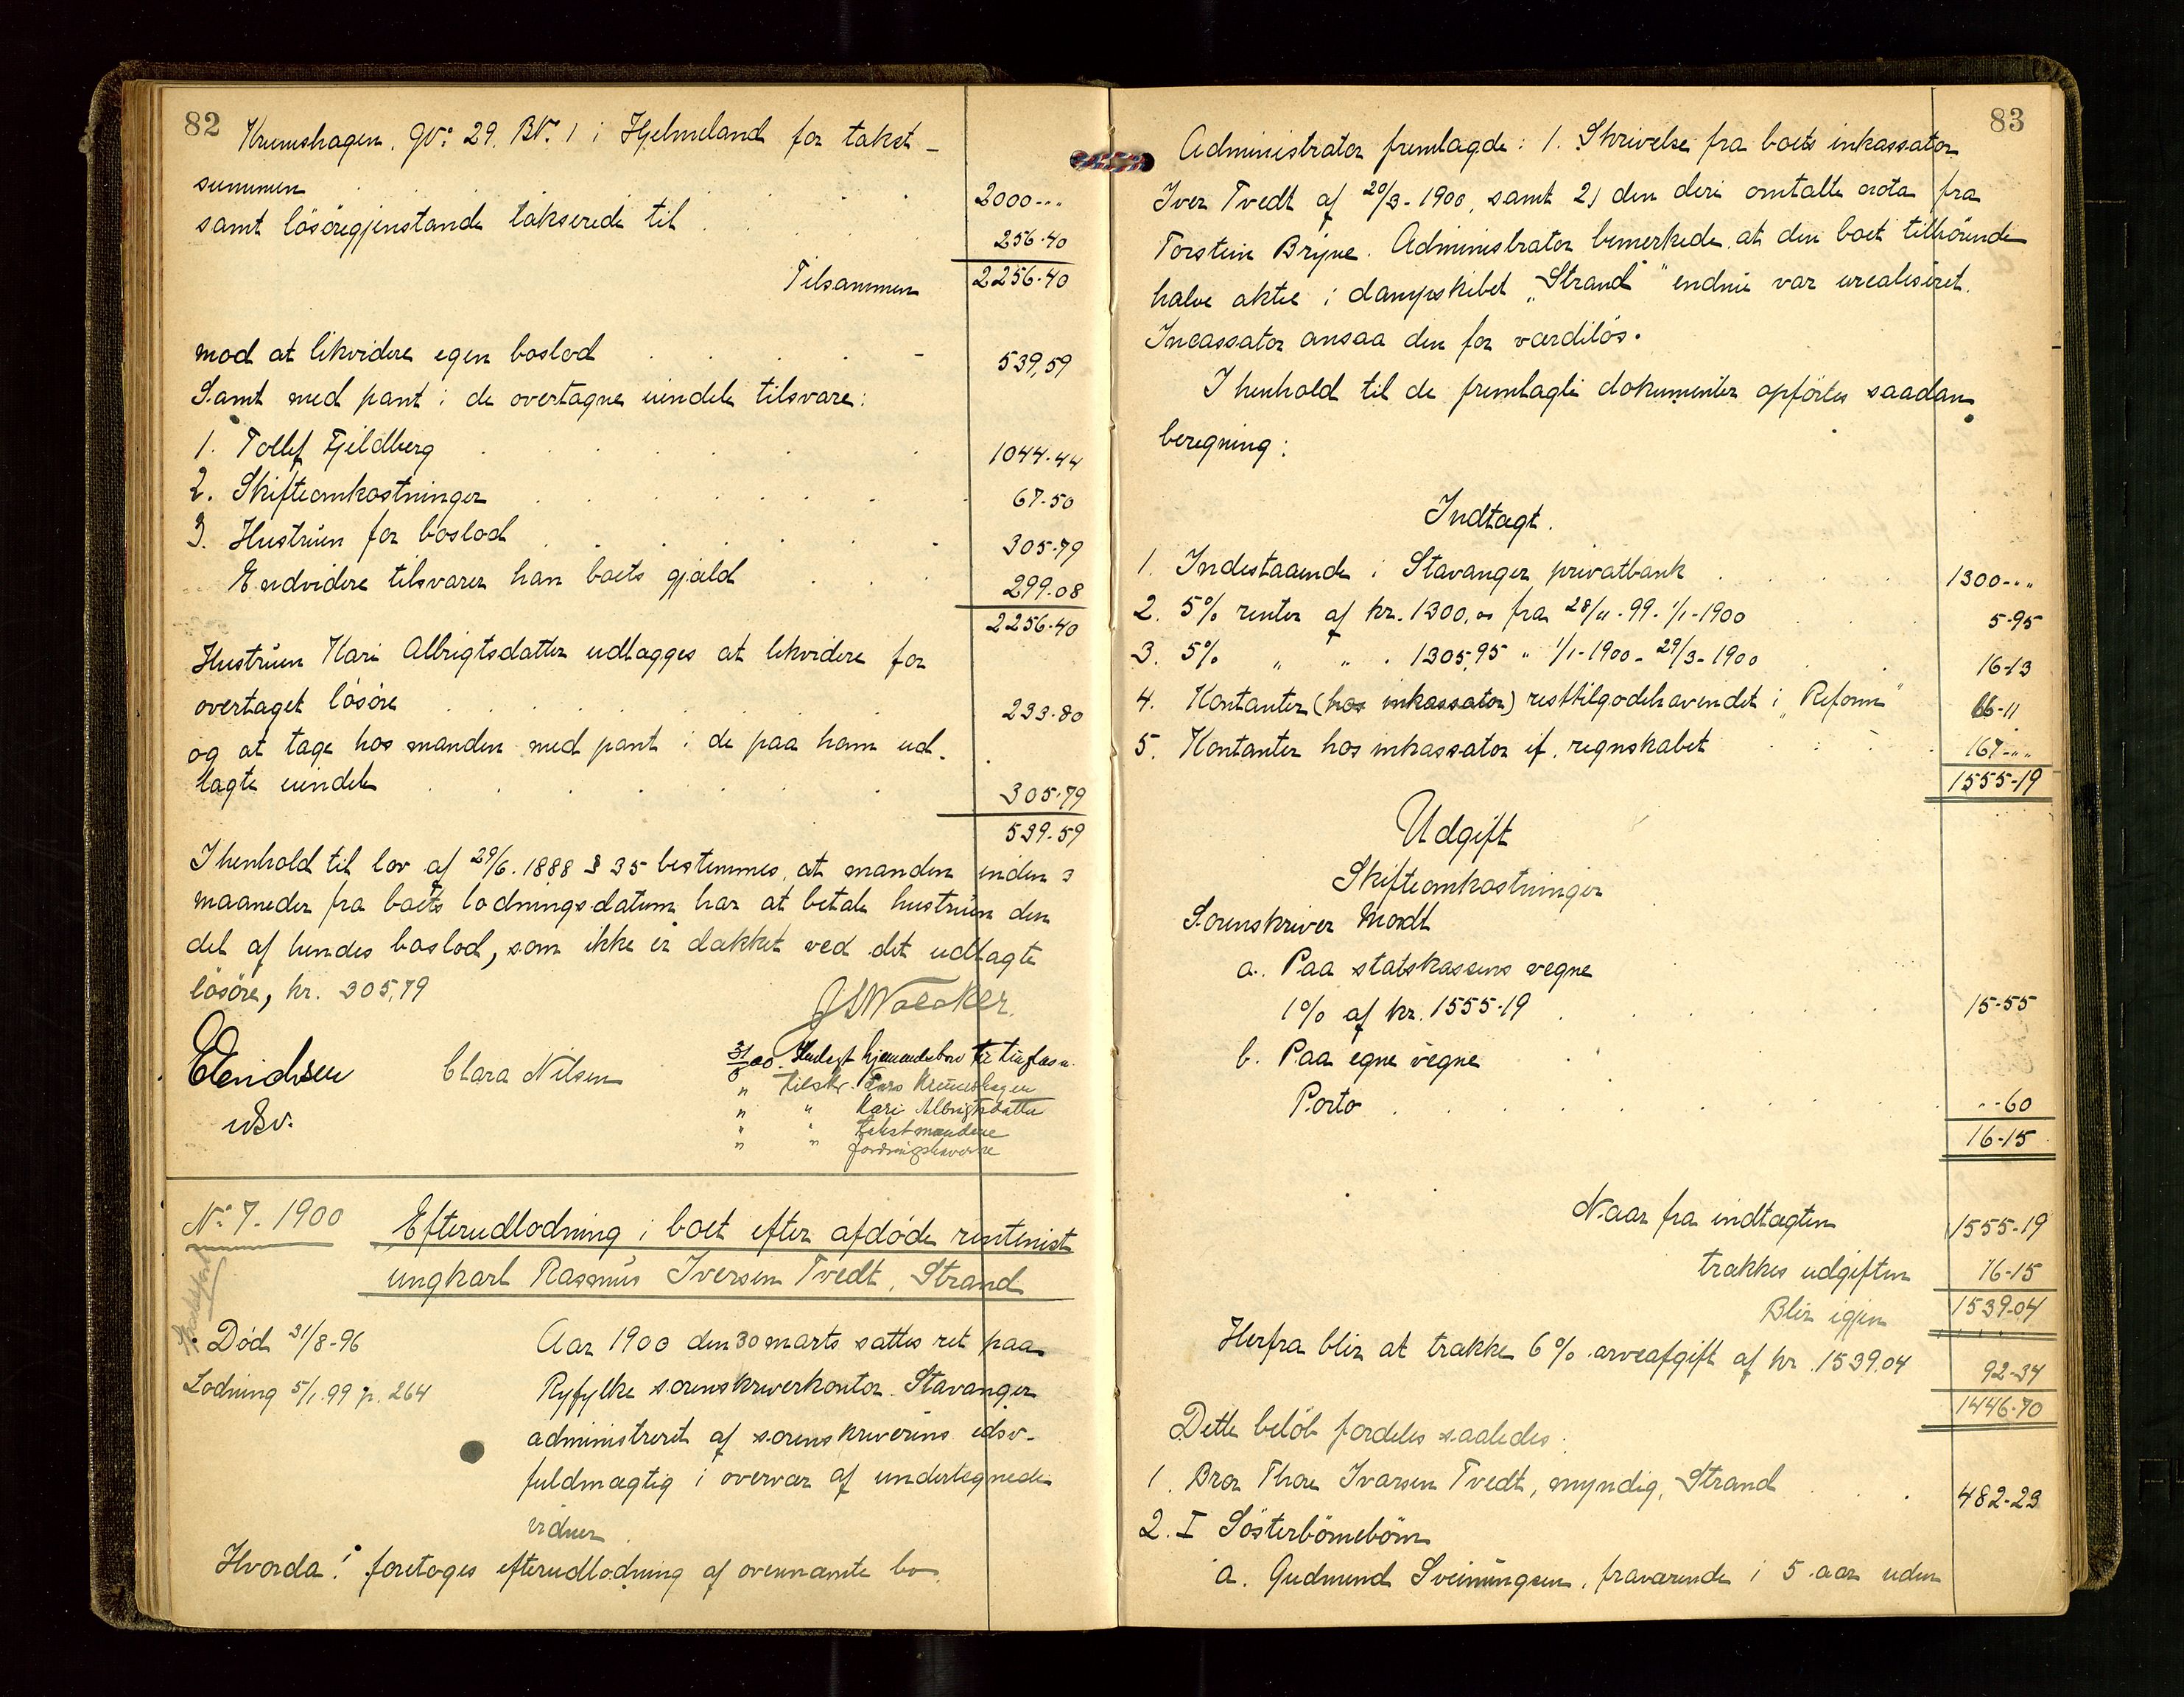 82
Krumshagen. GN: 29. BN. 1 i Hjelmeland for takst-
summen . . . . 2000-"
samt lösöregjenstande takserede til . . . 256.40
Tilsammen 2256.40
mod at likvidere egen boslod . . . . - 539,59
Samt med pant i de overtagne eiendele tilsvare:
1. Tollef Fjeldberg . . . . . . 1044.44
2. Skifteomkostninger . . . . . . 67-50
3. Hustruen for boslod . . . . . 305-79
Endvidere tilsvarer han boets gjæld . . . 299.08
2256.40
Hustruen Kari Albrigtsdatter udlægges at likvidere for
overtaget lösöre . . . . . . 233.80
og at tage hos manden med pant i de paa ham ud-
lagte eiendele . . . . . 305.79
539.59
I henhold til lov af 29/6. 1888 § 35 bestemmes, at manden inden 3
maaneder fra boets lodningsdatum har at betale hustruen den
del af hendes boslod, som ikke er dækket ved det udlagte
lösöre, kr. 305,79
Clara Nilsen
tilskr. Lars Krumshagen
" " Kari Albrigtsdatter
" " takstmændene
" " fordringshaverne
No 7. 1900
Efterudlodning i boet efter afdøde rentenist
ungkarl Rasmus Iversen Tvedt, Strand
Død 31/8-96
Lodning 5/1.99 p. 264
Aar 1900 den 30 marts sattes ret paa
Ryfylke sorenskriverkontor Stavanger
administreret af sorenskriverens edsv.
fuldmægtig i overvær af undertegnede
vidner
Hvorda: foretoges efterudlodning af ovennævnte bo.
83
Administrator fremlagde: 1. Skrivelse fra boets inkassator
Iver Tvedt af 20/3-1900, samt 2) den deri omtalte nota fra
Torstein Bryne. Administrator bemerkede, at den boet tilhörende
halve aktie i dampskibet „Strand" endnu var urealiseret.
Incassator ansaa den for værdilös.
I henhold til de fremlagte dokumenter opförtes saadan
beregning:
Indtægt.
1. Indestaaende i Stavanger privatbank . . . . 1300-"
2. 5% renter af kr. 1300,00 fra 28/11-99-1/1-1900 . . 5-95
3. 5% " " . 1305,95 " 1/1-1900-29/3-1900 . . 16-13
4. Kontanter (hos inkassator) resttilgodehavendet i „Reform" 66-11
5. Kontanter hos inkassator if. regnskabet . . . 167-"
1555-19
Udgift
Skifteomkostninger
Sorenskriver Modt
a. Paa statskassens vegne
1% af kr. 1555-19 . . . . . 15-55
b. Paa egne vegne
Porto . . . . . . . "-60
16-15
Naar fra indtægten 1555-19
trækkes udgiften 16-15
Blir igjen 1539-04
Herfra blir at trække 6% arveafgift af kr. 1539.04 92-34
1446.70
Dette belöb fordeles saaledes:
1. Bror Thore Ivarsen Tvedt, myndig, Strand . . 482-23
2. I Søsterbörnebörn
a. Gudmund Sveinungsen, fraværende i 5 aar uden